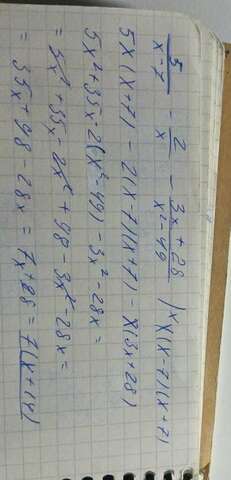 5/(x-7) - 2/x - (3x+28)/(x²-49) | ×x(x-7)(x+7)
5x(x+7) - 2(x-7)(x+7) - x(3x+28)
5x²+35x-2(x²-49)-3x²-28x=
=5x²+35x-2x²+98-3x²-28x=
=35x+98-28x=7x+98=7(x+14)